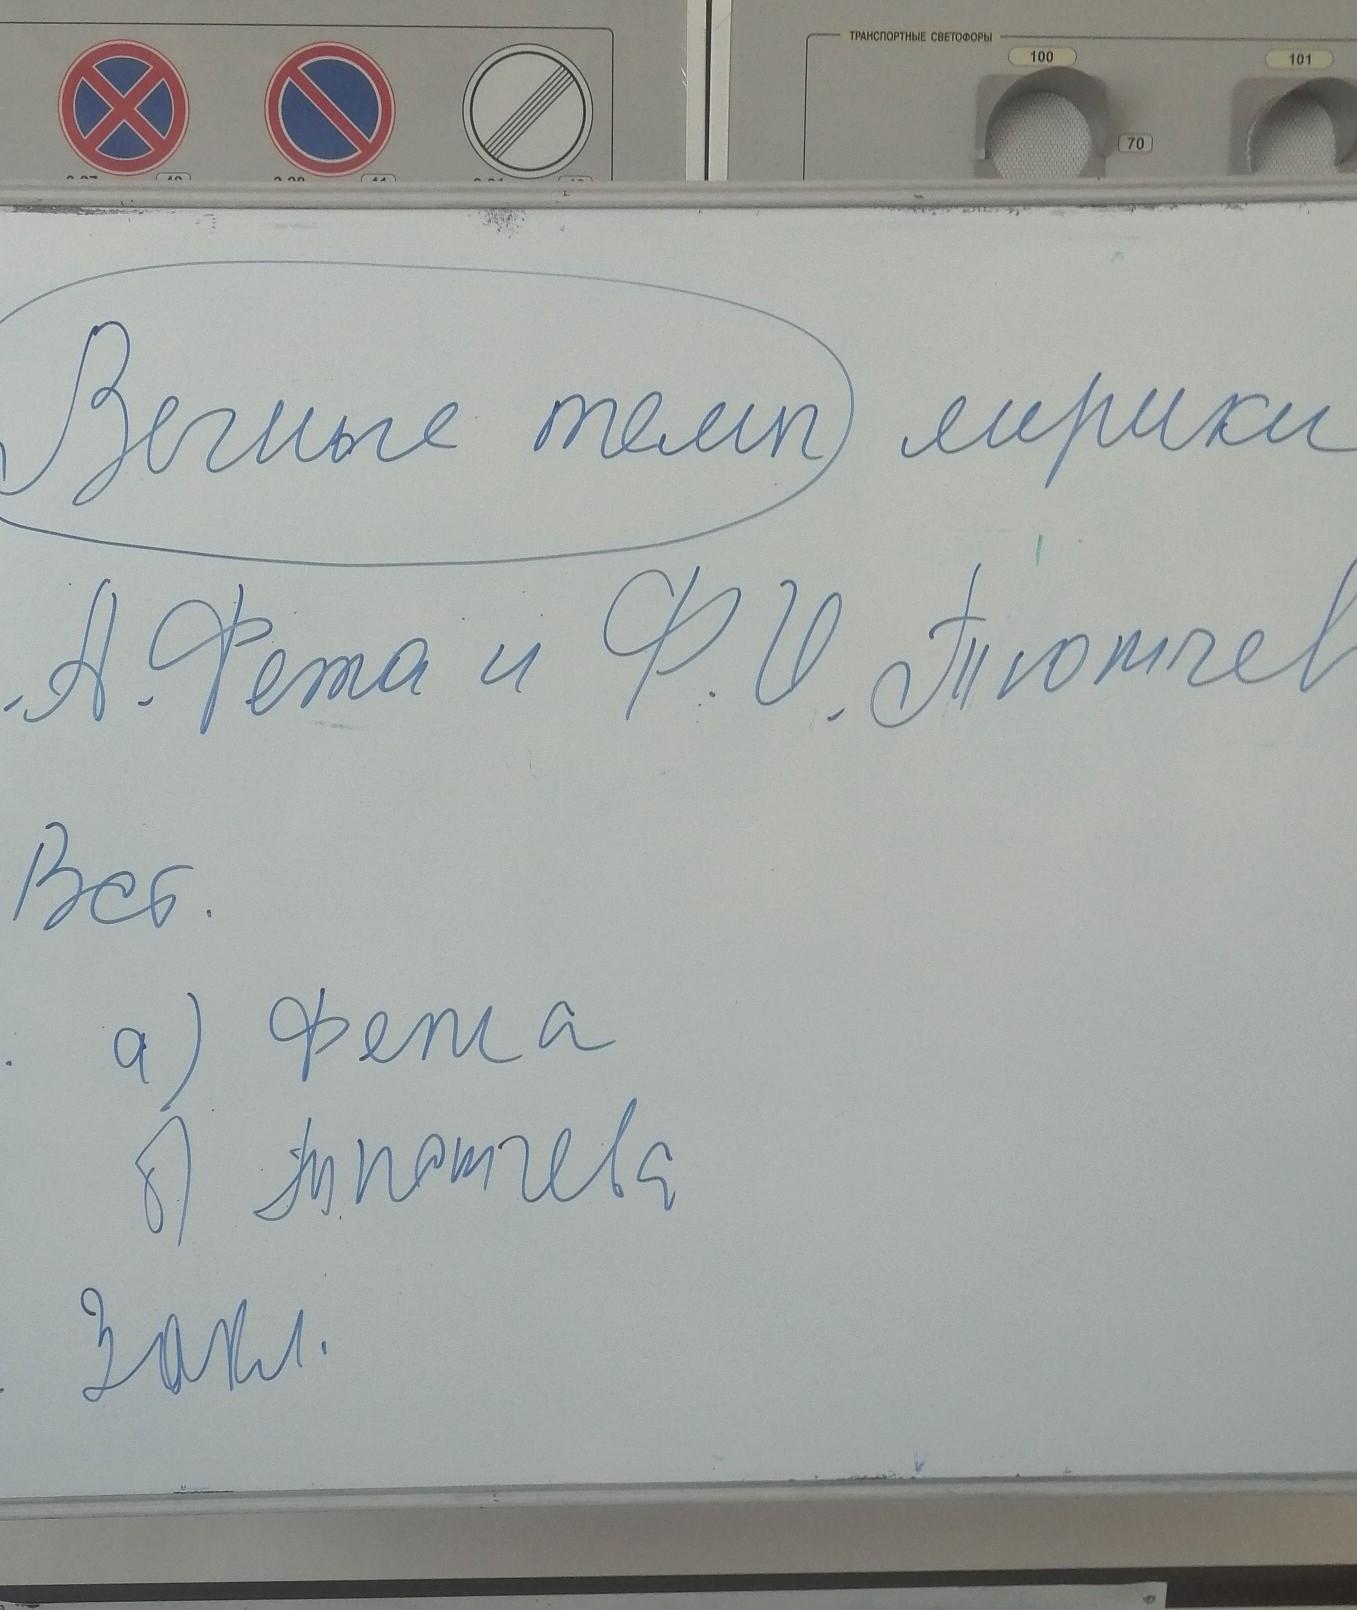 ТРАНСПОРТНЫЕ СВЕТОФОРЫ
100
101
70
Вечные темы лирики
.А.Фета и Ф.И.Тютчев
Вст.
а) Фета
б) Тютчева
Закл.